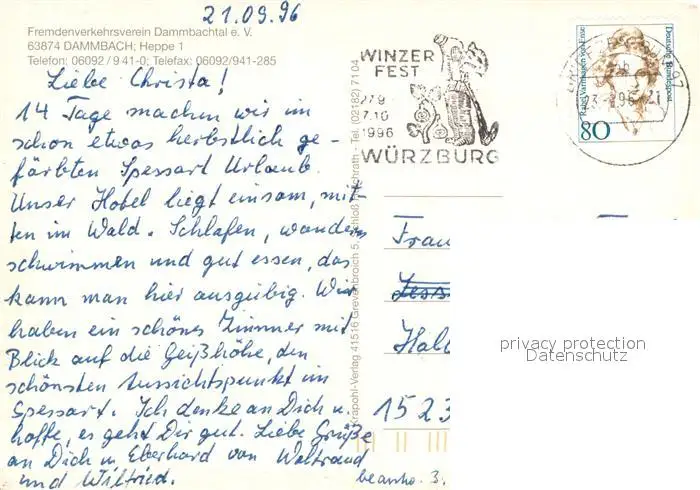 21.09.96
Fremdenverkehrsverein Dammbachtal e. V.
63874 DAMMBACH; Heppe 1
Telefon: 06092 / 9 41-0; Telefax: 06092/941-285
Liebe Christa!
14 Tage machen wir im
schon etwas herbstlich ge-
färbten Spessart Urlaub.
Unser Hotel liegt einsam, mit-
ten im Wald. Schlafen, wandern
schwimmen und gut essen, das
kann man hier ausgiebig. Wir
haben ein schönes Zimmer mit
Blick auf die Geißhöhe, den
schönsten Aussichtspunkt im
Spessart. Ich denke an Dich u.
hoffe, es geht Dir gut. Liebe Grüße
an Dich u. Eberhard von Waltraud
und Wilfried.
WINZER
FEST
27.9
7.10
1996
WÜRZBURG
Rahel Varnhagen von Ense
Deutsche Bundespost
80
Krapohl-Verlag 41516 Grevenbroich 5, Schloß
- Tel. (02182) 71 04
Frau
Hal
1523
beantw. 3.
privacy protection
Datenschutz